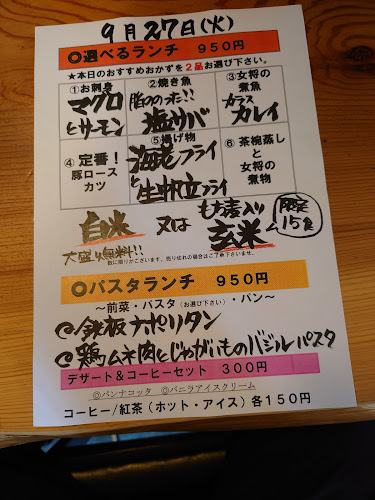 9月27日(火)
◎選べるランチ 950円
★本日のおすすめおかずを2品お選び下さい。
①お刺身
マグロとサーモン
②焼き魚
脂ののった!!
塩サバ
③女将の煮魚
カラスカレイ
④定番!
豚ロースカツ
⑤揚げ物
海老フライと生帆立フライ
⑥茶碗蒸しと女将の煮物
白米 又は もち麦入り玄米
限定15食
大盛り無料!!
数に限りがございます。売り切れの場合はご了承下さいませ。
◎パスタランチ 950円
〜前菜・パスタ(お選び下さい)・パン〜
◎鉄板ナポリタン
◎鶏ムネ肉とじゃがいものバジルパスタ
デザート&コーヒーセット 300円
◎パンナコッタ ◎バニラアイスクリーム
コーヒー/紅茶(ホット・アイス)各150円